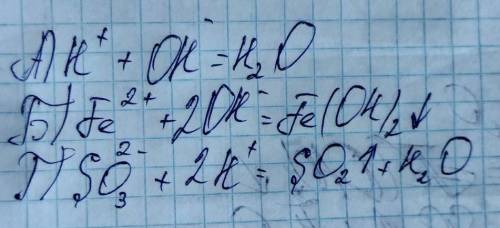 А) H⁺ + OH⁻ = H₂O
Б) Fe²⁺ + 2OH⁻ = Fe(OH)₂↓
Г) SO₃²⁻ + 2H⁺ = SO₂↑ + H₂O